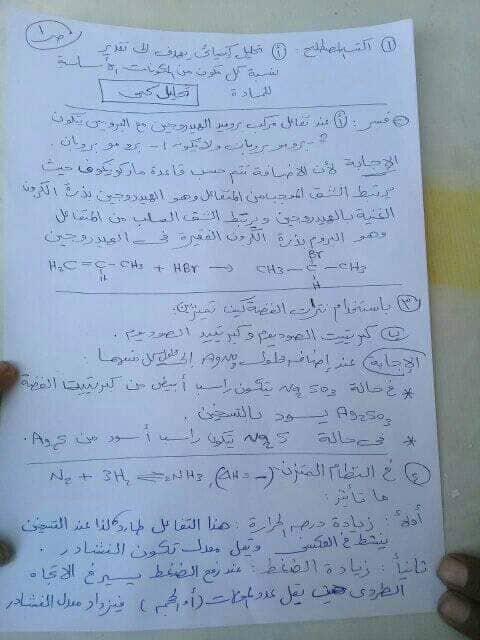 ص١
١ اكتب المصطلح: أ تحليل كيميائي يهدف إلى تقدير
نسبة كل مكون من المكونات الأساسية
للمادة تحليل كمى
فسر: أ عند تفاعل مركب بروميد الهيدروجين مع البروبين يتكون
2- برومو بروبان ولا يتكون 1- برومو بروبان.
الإجابة لأن الاضافة تتم حسب قاعدة ماركونيكوف حيث
يرتبط الشق الموجب من المتفاعل وهو الهيدروجين بذرة الكربون
الغنية بالهيدروجين ويرتبط الشق السالب من المتفاعل
وهو البروم بذرة الكربون الفقيرة فى الهيدروجين
Br
H₂C = C - CH₃ + HBr → CH3 - C - CH3
H H
٣ باستخدام نترات الفضة كيف تميز بين:
كبريتيت الصوديوم وكبريتيد الصوديوم.
الإجابة عند إضافة محلول AgNO₃ إلى محلول كل منهما:
* فى حالة Na₂SO₃ يتكون راسب أبيض من كبريتيت الفضة
Ag₂SO₃ يسود بالتسخين.
* فى حالة Na₂S يتكون راسب أسود من Ag₂S.
٤ فى النظام المتزن N₂ + 3H₂ ⇌ 2NH₃, (ΔH = -)
ما تأثير:
أولاً: زيادة درجة الحرارة: هذا التفاعل طارد لذا عند التسخين
ينشط فى العكسى ويقل معدل تكون النشادر.
ثانياً: زيادة الضغط: عند رفع الضغط يسير فى الاتجاه
الطردى حيث يقل عدد المولات (أو الحجم) فيزداد معدل النشادر